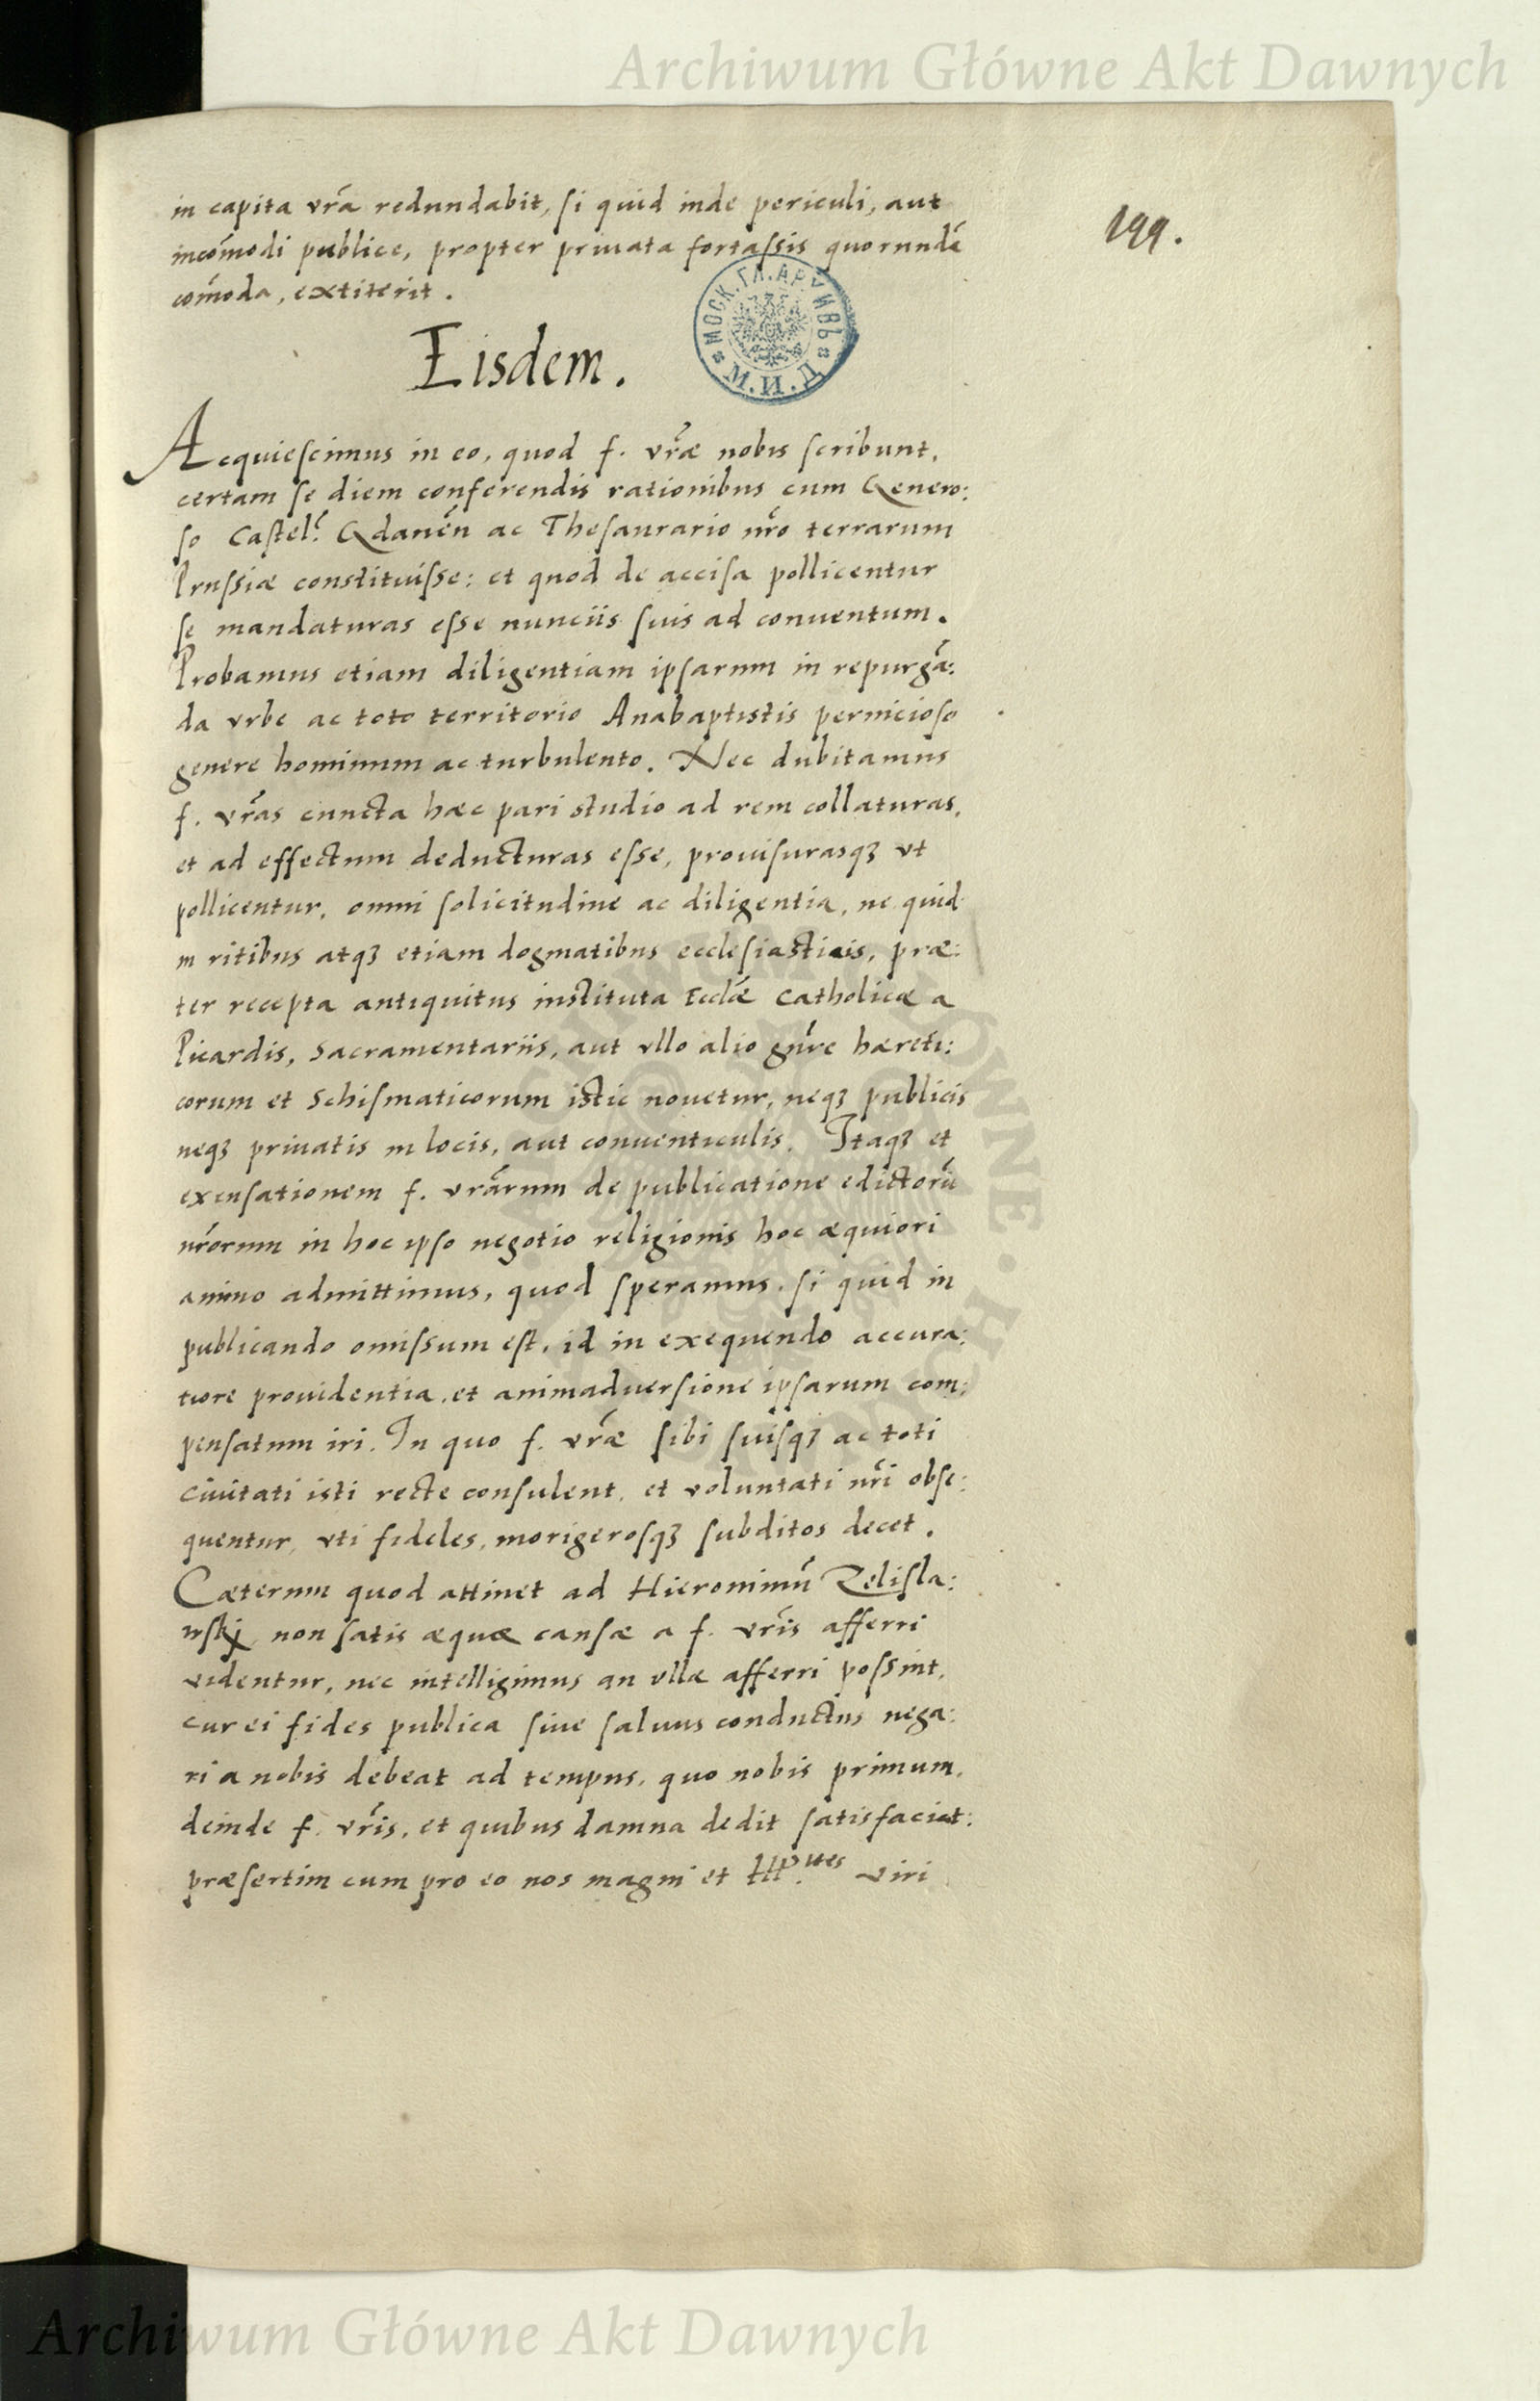 Archiwum Główne Akt Dawnych
199.
in capita vr̃a redundabit, si quid inde periculi, aut
incõmodi publice, propter priuata fortassis quorundã
cõmoda, extiterit.
МОСК. ГЛ. АРХИВЪ
Ц. И. М.
Eisdem.
Acquiescimus in eo, quod f. vr̃æ nobis scribunt,
certam se diem conferendis rationibus cum Genero:
so Castel. Gdanen̄ ac Thesaurario nr̃o terrarum
Prussiæ constituisse: et quod de accisa pollicentur
se mandaturas esse nunciis suis ad conuentum.
Probamus etiam diligentiam ipsarum in repurgã:
da vrbe ac toto territorio Anabaptistis pernicioso
genere hominum ac turbulento. Nec dubitamus
f. vr̃as cuncta hæc pari studio ad rem collaturas,
et ad effectum deducturas esse, prouisurasqꝫ vt
pollicentur, omni solicitudine ac diligentia, ne quid
in ritibus atqꝫ etiam dogmatibus ecclesiasticis, præ:
ter recepta antiquitus instituta Ecclæ̃ Catholicæ a
Picardis, Sacramentariis, aut vllo alio gñre hæreti:
corum et Schismaticorum istic nouetur, neqꝫ publicis
neqꝫ priuatis in locis, aut conuenticulis. Itaqꝫ et
excusationem f. vr̃arum de publicatione edictorũ
nr̃orum in hoc ipso negotio religionis hoc æquiori
animo admittimus, quod speramus, si quid in
publicando omissum est, id in exequendo accura:
tiore prouidentia, et animaduersione ipsarum com:
pensatum iri. In quo f. vr̃æ sibi suisqꝫ ac toti
ciuitati isti recte consulent, et voluntati nr̃i obse:
quentur, vti fideles, morigerosqꝫ subditos decet.
Cæterum quod attinet ad Hieronimũ Zelisla:
wskj non satis æquæ causæ a f. vr̃is afferri
videntur, nec intelligimus an vllæ afferri possint,
cur ei fides publica siue saluus conductus nega:
ri a nobis debeat ad tempus, quo nobis primum,
deinde f. vr̃is, et quibus damna dedit satisfaciat:
præsertim cum pro eo nos magni et viri
Archiwum Główne Akt Dawnych